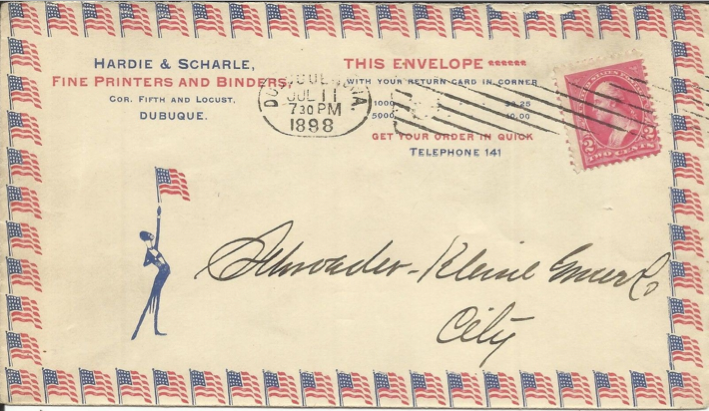 HARDIE & SCHARLE,
FINE PRINTERS AND BINDERS,
COR. FIFTH AND LOCUST,
DUBUQUE.
THIS ENVELOPE
WITH YOUR RETURN CARD IN CORNER
1000
5000 10.00
GET YOUR ORDER IN QUICK
TELEPHONE 141
JUL 11
7 30 PM
1898
2 2
TWO CENTS
Schroeder-Kleine Grocer Co
City